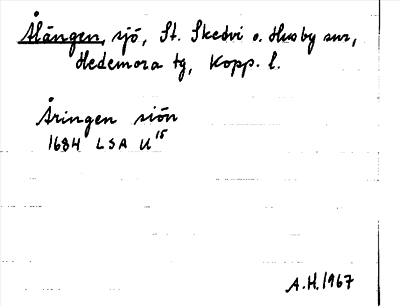 Ålängen, sjö, St. Skedvi o. Husby snr,
Hedemora tg, Kopp. l.
Åringen siön
1684 LSA U 15
A.H. 1967